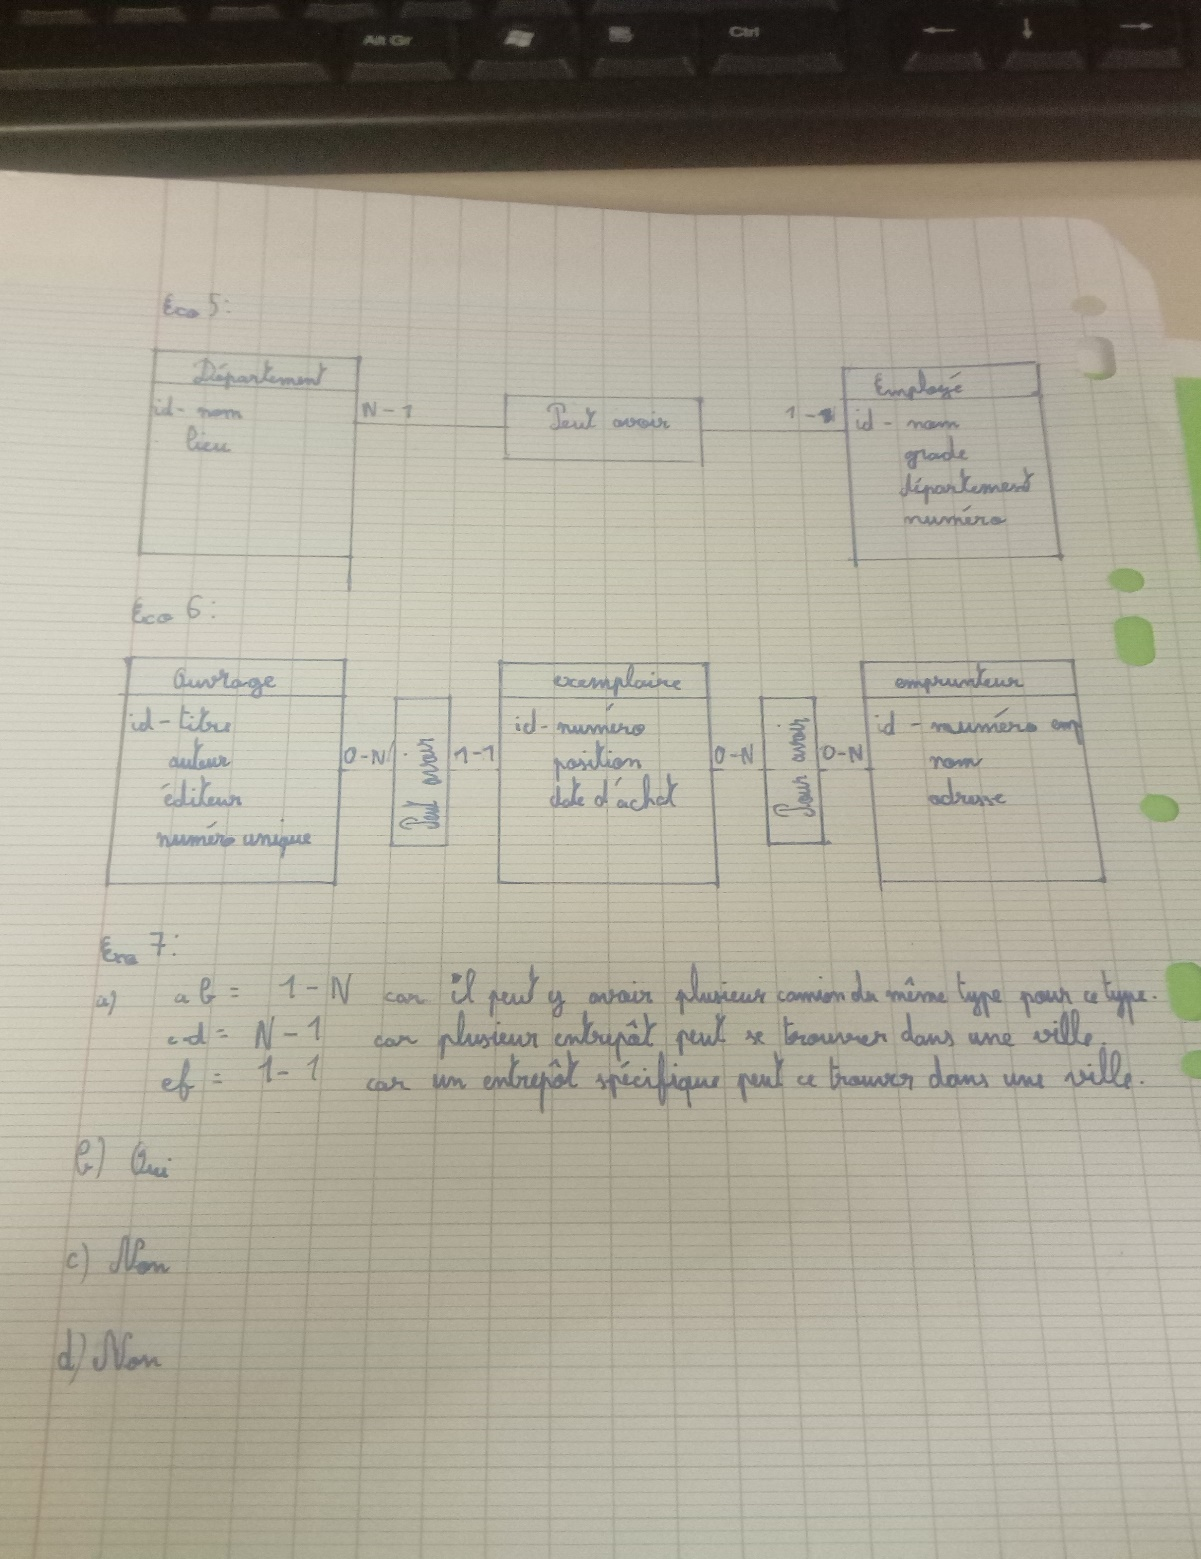 Alt Gr
Ctrl
← ↓ →
Exo 5:
Département
id - nom
lieu
N-1
Peut avoir
1-1
Employé
id - nom
grade
département
numéro
Exo 6:
Ouvrage
id - titre
auteur
éditeur
numéro unique
0-N
Peut avoir
1-1
exemplaire
id - numéro
position
date d'achat
0-N
Pour avoir
0-N
emprunteur
id - numéro emp
nom
adresse
Exo 7:
a) ab = 1-N car il peut y avoir plusieur camion du même type pour ce type.
cd = N-1 car plusieur entrepôt peut se trouver dans une ville.
ef = 1-1 car un entrepôt spécifique peut ce trouver dans une ville.
b) Oui
c) Non
d) Non